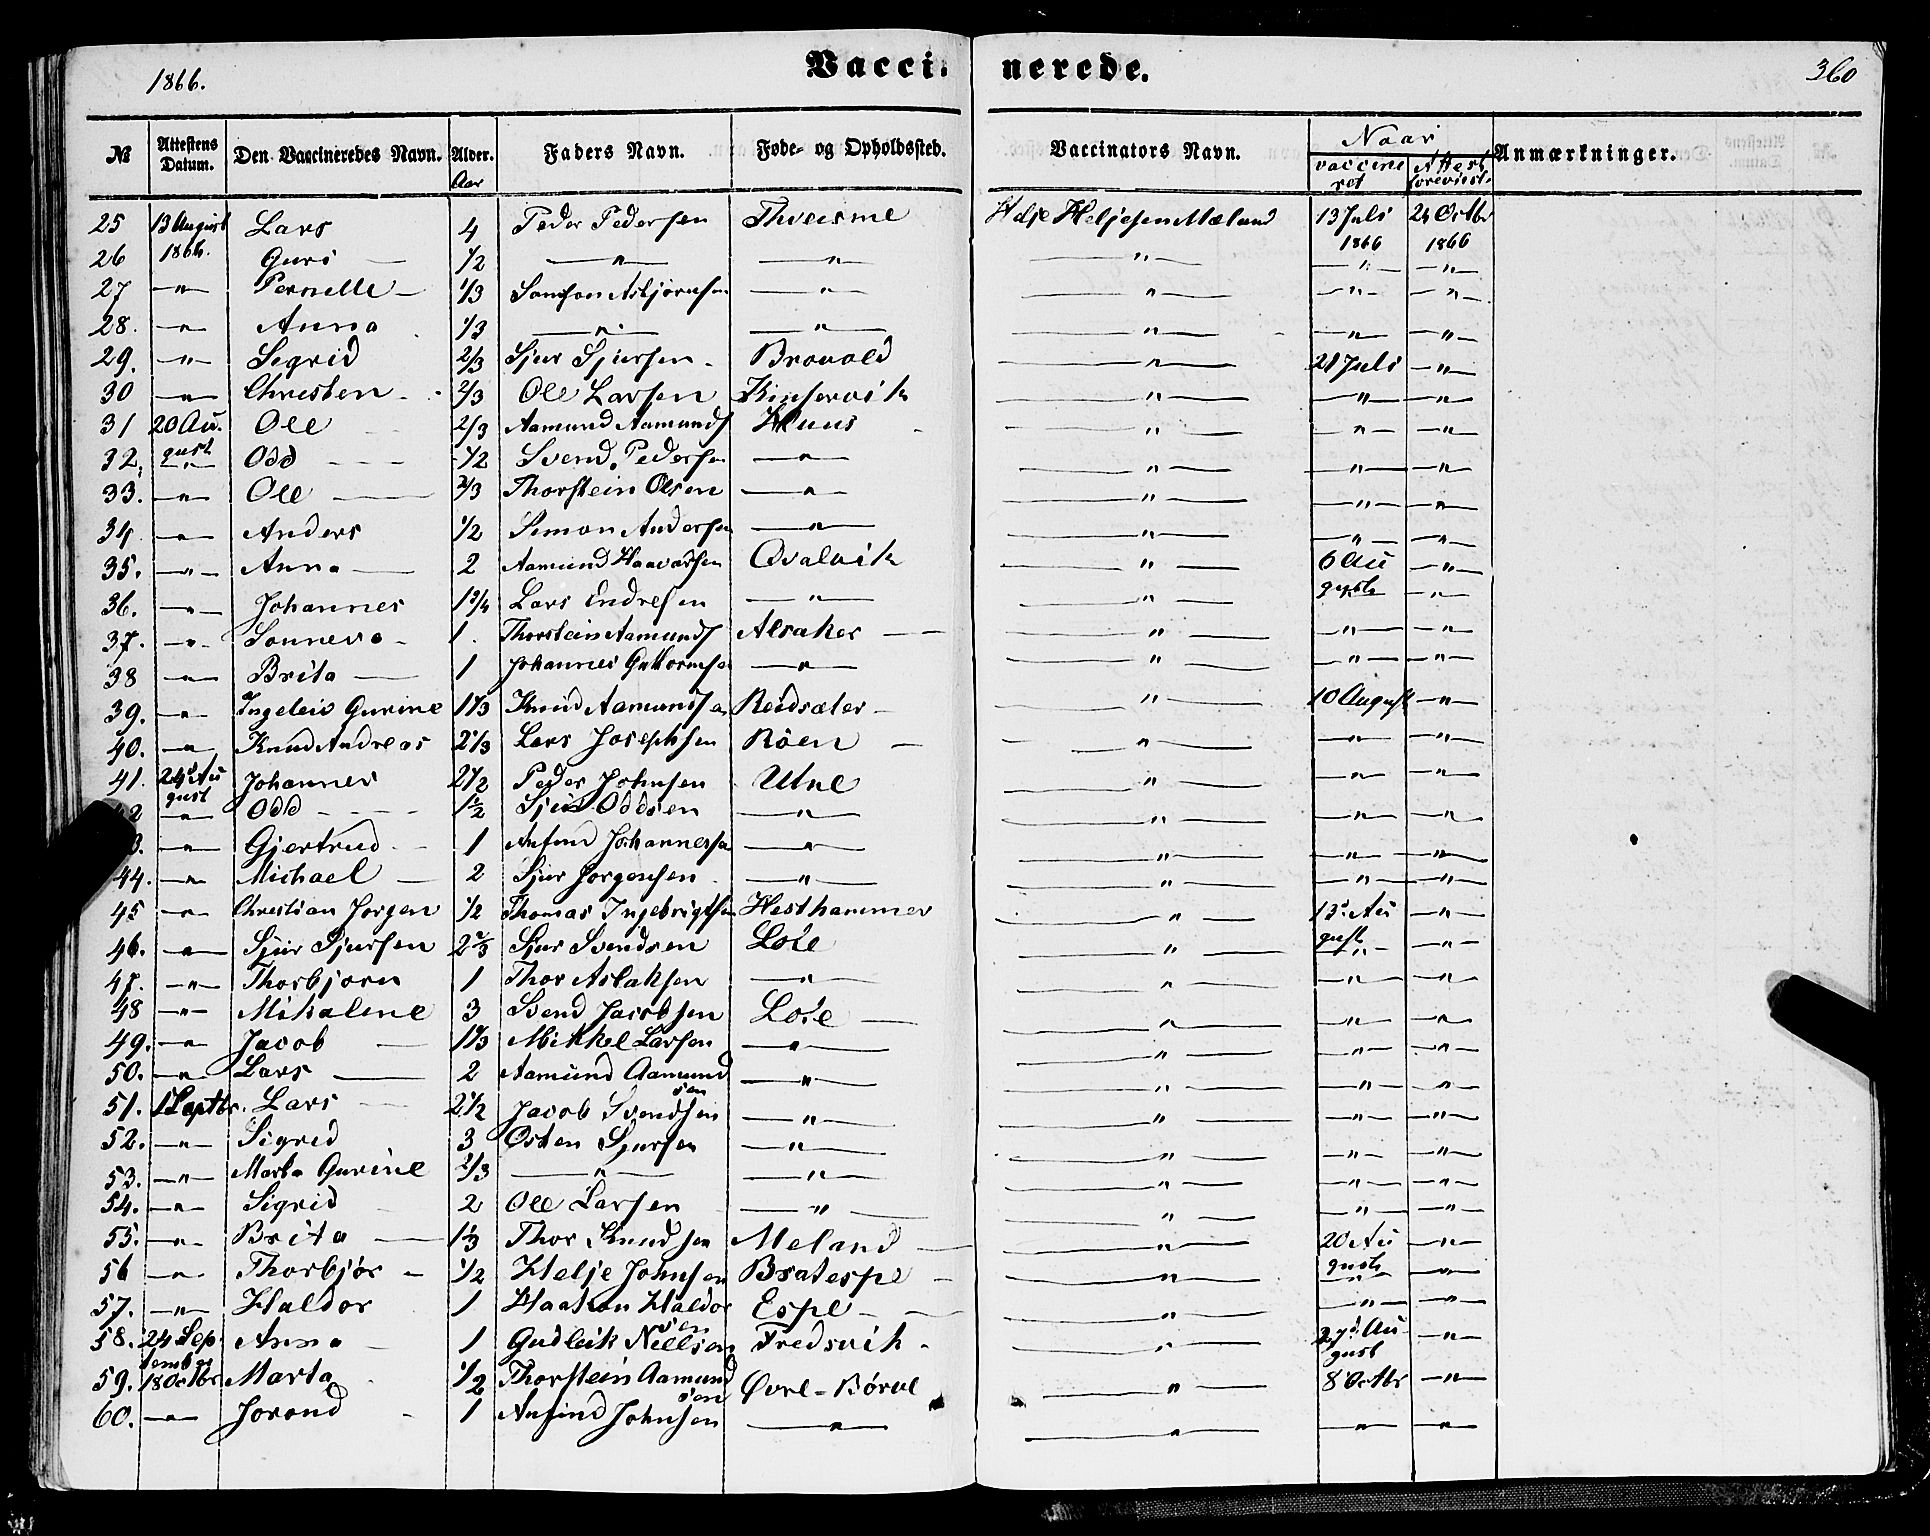 1866.
Vacci- nerede.
360
№ Attestens Datum. Den Vaccineredes Navn. Alder. Aar Faders Navn. Føde- og Opholdssted. Vaccinators Navn. Naar vaccineret Attest forevist. Anmærkninger.
25 13 August 1866. Lars 4 Peder Pedersen Helje Heljesen Mæland 13 Juli 1866 24 Octbr 1866
26 Guri — 1/2 —"— —"— —"— —"— —"—
27 —"— Pernelle — 1/3 Samson Asbjørnsen —"— —"— —"— —"—
28. —"— Anna 1/3 —"— —"— —"— —"— —"—
29. —"— Segrid 2/3 Sjur Sjursen Brovold —"— 21 Juli —"—
30 —"— Christen 2/3 Ole Larsen Kinservik —"— —"— —"—
31 20 August Ole 2/3 Aamund Aamunds Huus —"— —"— —"—
32. —"— Odd 1/2 Svend Pedersen —"— —"— —"— —"—
33. —"— Ole 2/3 Thorstein Olsen —"— —"— —"— —"—
34 —"— Anders 1/2 Simon Andersen —"— —"— —"— —"—
35. —"— Anna 2 Aamund Haavarsen Qvalvik —"— 6 August —"—
36. —"— Johannes 1 3/4 Lars Endresen —"— —"— —"— —"—
37. —"— Sonneva 1. Thorstein Aamunds Alsaker —"— —"— —"—
38 —"— Brita 1 Johannes Guttormsen —"— —"— —"— —"—
39. —"— Ingeleiv Gurine 1 1/3 Knud Aamundsen Reidsæter —"— 10 August —"—
40. —"— Knud Andreas 2 1/3 Lars Josephsen Röen —"— —"— —"—
41. 24 August Johannes 2 1/2 Peder Johnsen Utne —"— —"— —"—
42 —"— Odd 1 1/2 Sjur Oddsen —"— —"— —"— —"—
3. —"— Gjertrud 1 Anfind Johannessen —"— —"— —"— —"—
44. —"— Michael 2 Sjur Jørgensen —"— —"— —"— —"—
45 —"— Christian Jørgen 1/2 Thomas Ingebrigtsen Hesthammer —"— 13 August —"—
46. —"— Sjur Sjursen 2 2/3 Sjur Svendsen Lote —"— —"— —"—
47. —"— Thorbjørn 1 Thor Aslaksen —"— —"— —"— —"—
48 —"— Mikaline 3 Svend Jacobsen Lote —"— —"— —"—
49. —"— Jacob 1 1/3 Mikkel Larsen —"— —"— —"— —"—
50. —"— Lars 2 Aamund Aamundsen —"— —"— —"— —"—
51. 1 Septbr. Lars 2 1/2 Jacob Svendsen —"— —"— —"— —"—
52. —"— Sigrid 3 Østen Sjursen —"— —"— —"— —"—
53. —"— Marta Gurine 2/3 —"— —"— —"— —"— —"—
54. —"— Sigrid 2 Ole Larsen —"— —"— —"— —"—
55. —"— Brita 1 1/3 Thor Knudsen Meland —"— 20 August —"—
56 —"— Thorbjør 1/2 Helje Johnsen Bratespe —"— —"— —"—
57. —"— Haldor 1 Haakon Haldorsen Espe —"— —"— —"—
58. 24 September Anna 1 Gudleik Nielsen Fredsvik —"— 27 August —"—
59. 18 Octbr Marta 1/2 Thorstein Aamundsen Øvre-Børve —"— 8 Octbr —"—
60. —"— Jorand 1 Anfind Johnsen —"— —"— —"— —"—